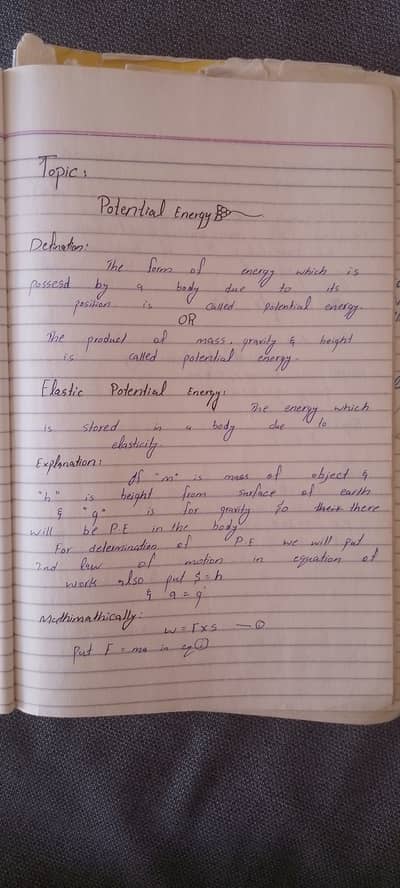 Topic:
Potential Energy
Defination:
The form of energy which is
possesd by a body due to its
position is called potential energy.
OR
The product of mass, gravity & height
is called potential energy.
Elastic Potential Energy:
The energy which
is stored in a body due to
elasticity.
Explanation:
If "m" is mass of object &
"h" is height from surface of earth
& "g" is for gravity so there
will be P.E in the body
For determination of P.E we will put
2nd law of motion in equation of
work also put S=h
& a=g
Mathimathically:
w=Fxs —①
Put F=ma in eq①